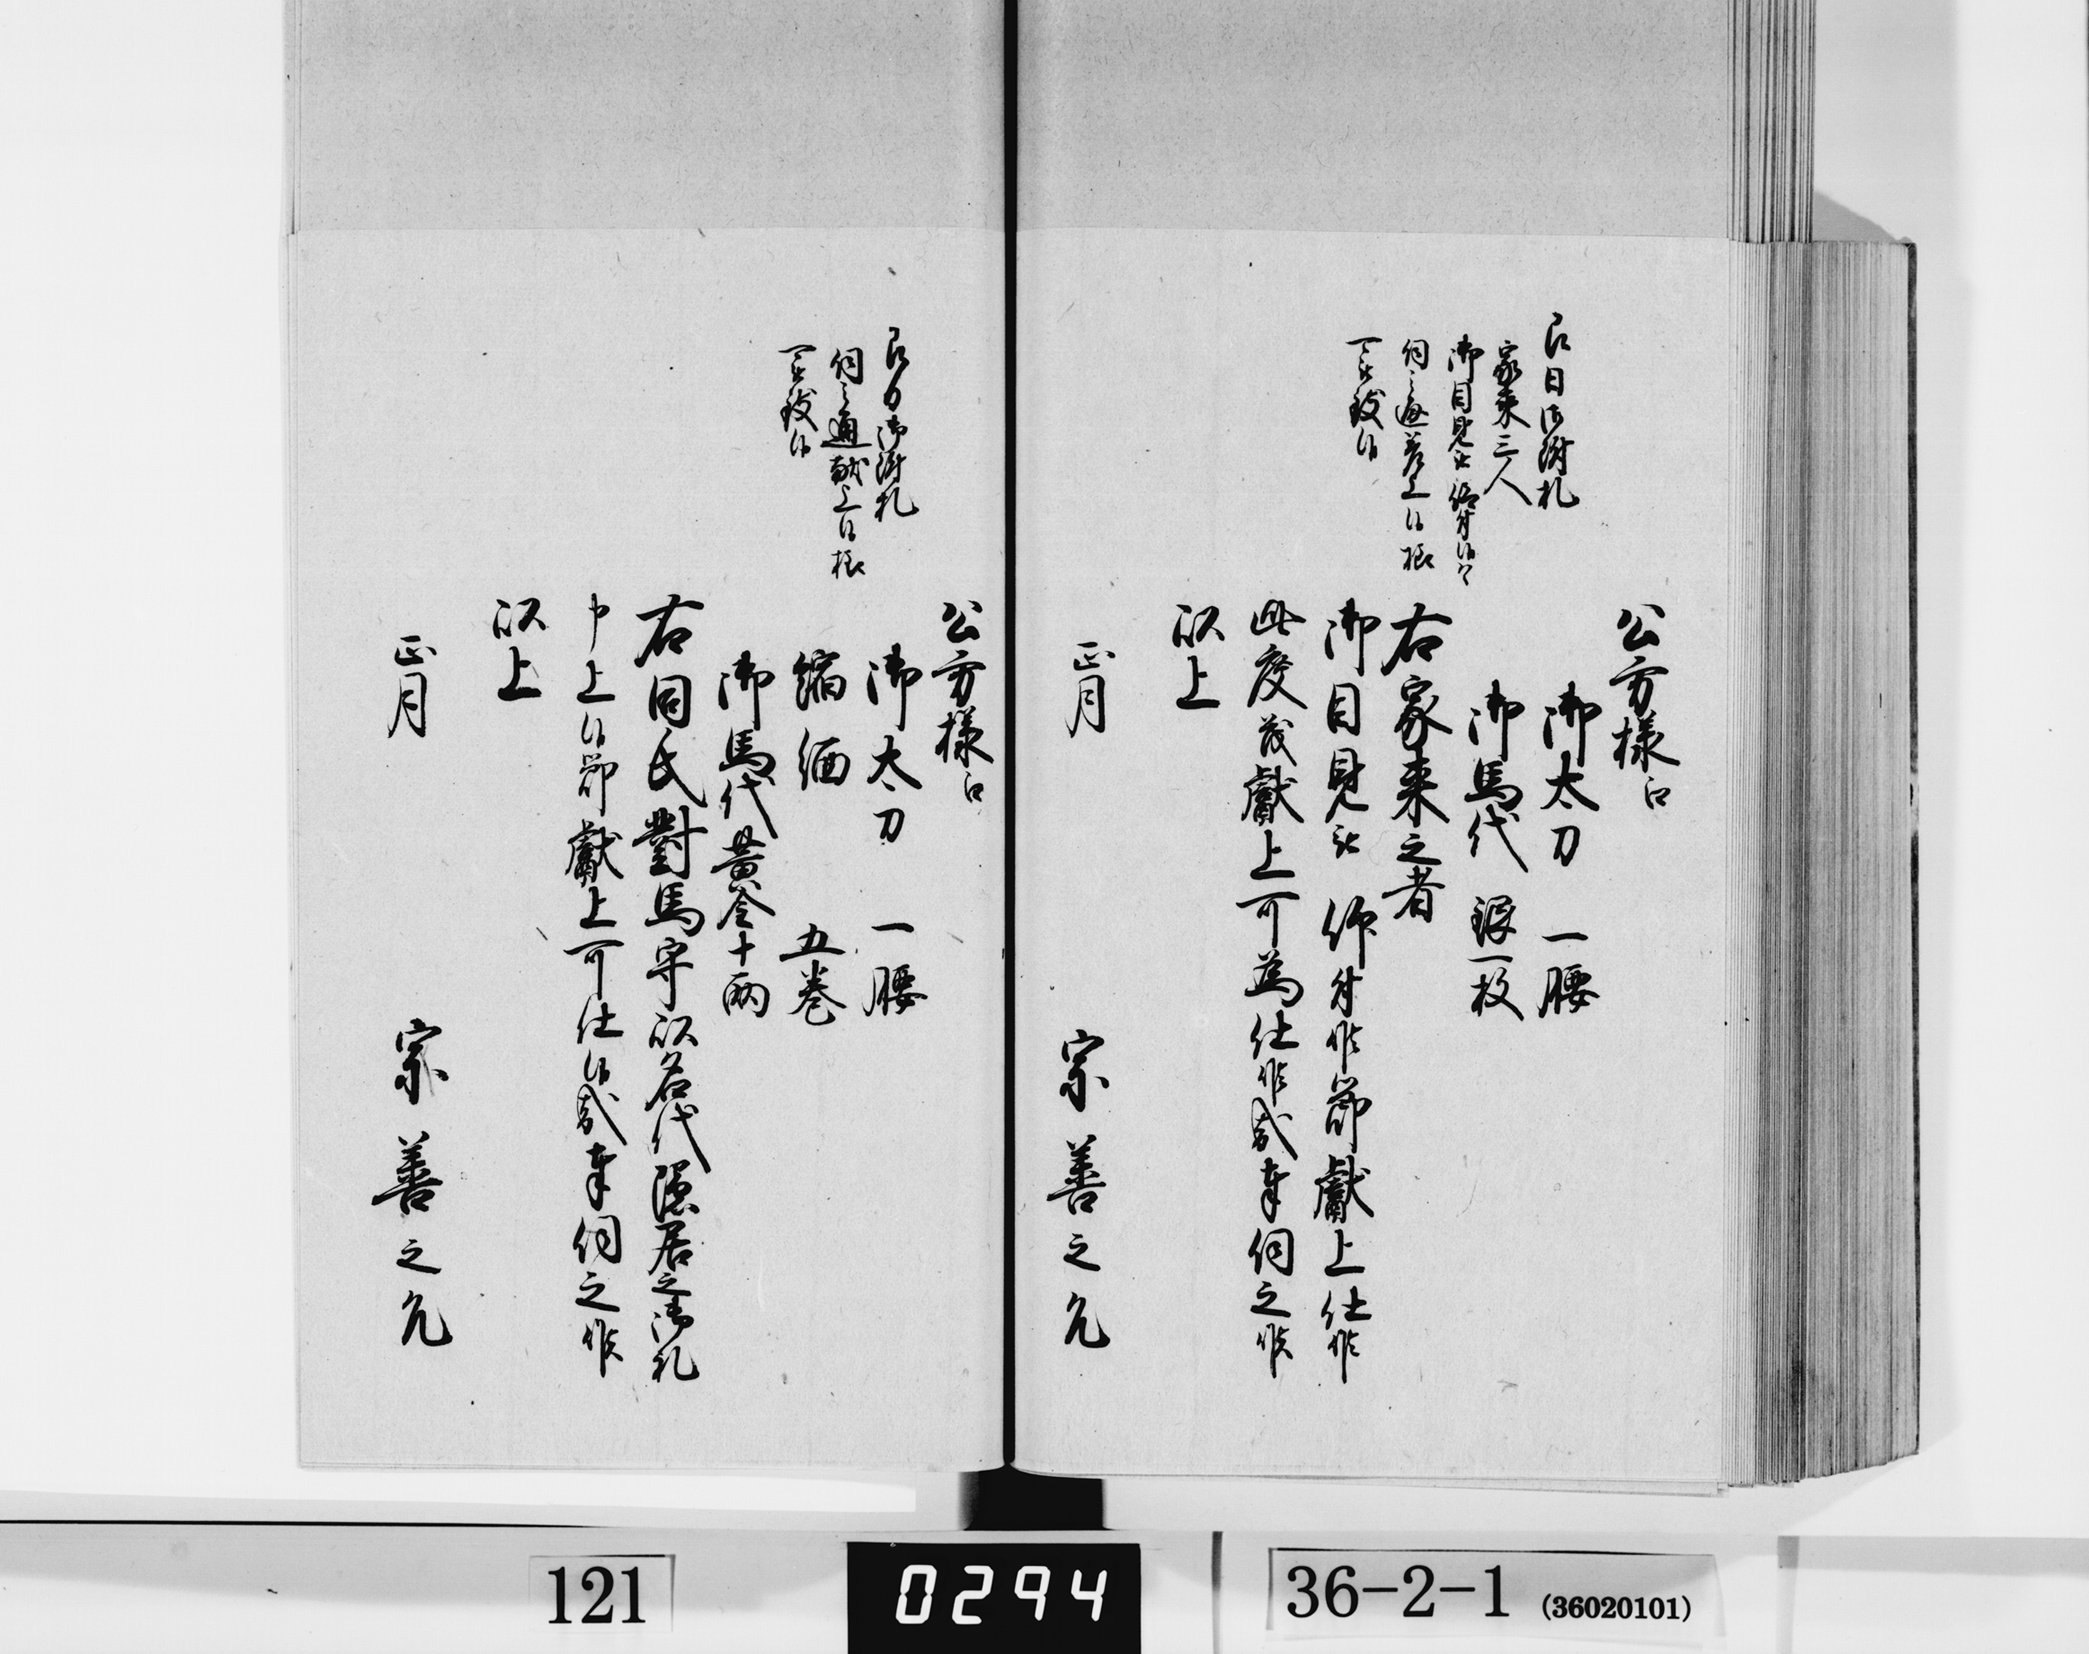 同日御附札
家来三人
御目見被仰付候ハヽ
伺之通差上候様
可被致候
公方様江
御太刀　一腰
御馬代　銀一枚
右家来之者
御目見被　仰付候節献上仕候
此度茂献上可為仕候哉奉伺之候
以上
正月　宗善之允
同日御附札
伺之通献上候様
可被致候
公方様江
御太刀　一腰
縮緬　五巻
御馬代黄金十両
右同氏對馬守以名代隠居之御礼
申上候節獻上可仕候哉奉伺之候
以上
正月　宗善之允
121
0294
36-2-1 (36020101)